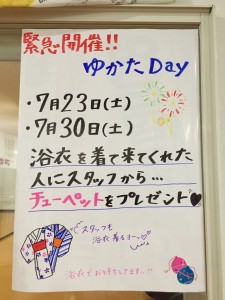 緊急開催!!
ゆかたDay
・7月23日(土)
・7月30日(土)
浴衣を着て来てくれた
人にスタッフから…
チューペットをプレゼント♥
スタッフも
浴衣着るヨ〜♡
浴衣でお待ちしてます